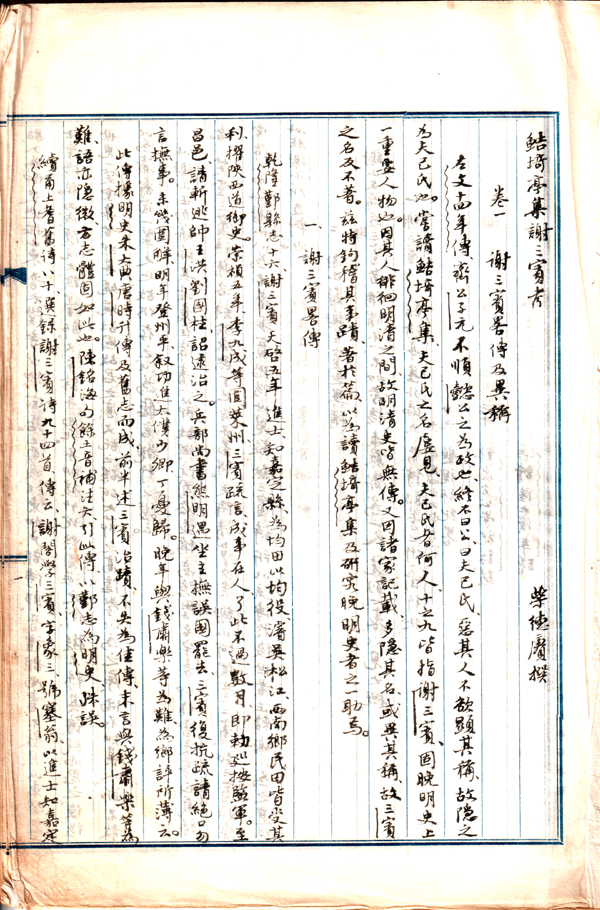 鲒埼亭集謝三賓考
柴德賡撰
卷一 謝三賓畧傳及異稱
左文十四年傳、齊公子元不順懿公之為政也、終不曰公、曰夫己氏、惡其人不欲顯其稱、故隱之
為夫己氏也。嘗讀鲒埼亭集、夫己氏之名屢見、夫己氏者何人、十之九皆指謝三賓、固晚明史上
一重要人物也。因其人徘徊明清之間、故明清史皆無傳。又因諸家記載、多隱其名、或異其稱、故三賓
之名反不著。茲特鈎稽其事蹟、著於篇、以為讀鲒埼亭集及研究晚明史者之一助焉。
一、謝三賓畧傳
乾隆鄞縣志十六謝三賓天啓五年進士、知嘉定縣、為均田以均役、濬吳淞江、西南鄉民田皆受其
利、擢陝西道御史。崇禎五年、李九成等圍萊州、三賓疏言、成事在人、了此不過數月、即勅廵按監軍。至
昌邑、請斬逃帥王洪劉國柱、詔逮治之。兵部尚書熊明遇坐主撫誤國罷去、三賓復抗疏請絕口勿
言撫事。未幾圍解、明年登州平、叙功進太僕少卿、丁憂歸。晚年與錢肅樂等為難、為鄉評所薄云。
此傳據明史朱大典唐時升傳及舊志而成、前半述三賓治蹟、不失為佳傳、末言與錢肅樂等為
難、語亦隱微、方志體固如此也。陳銘海句餘土音補注六引此傳、以鄞志為明史、殊誤。
續甬上耆舊詩八十、與錄謝三賓詩九十四首、傳云、謝閣學三賓、字象三、號塞翁、以進士知嘉定